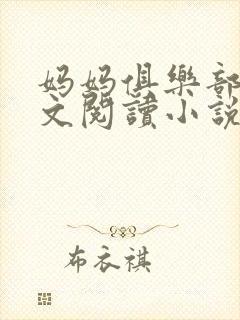 妈妈俱樂部
文閱讀小說
布衣祺